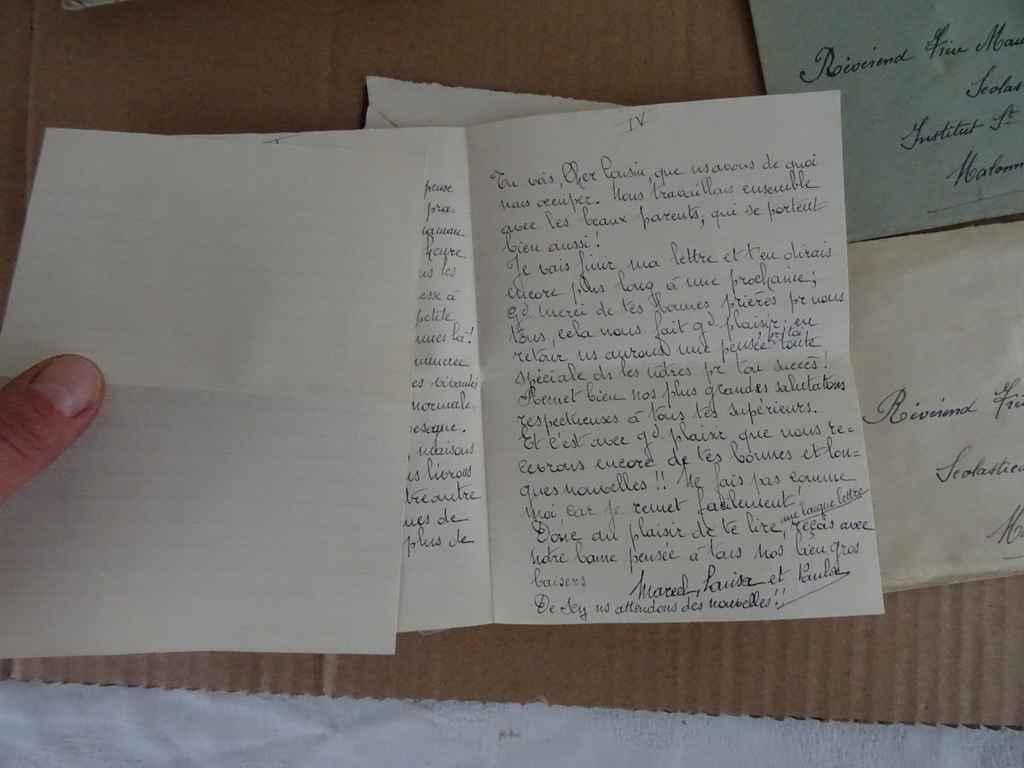 Révérend Frère Mau
Scolas
Institut St
Malonn
IV
Tu vois, Cher Cousin, que ns avons de quoi
nous occuper. Nous travaillons ensemble
avec les beaux parents, qui se portent
bien aussi!
Je vais finir ma lettre et t'en dirais
encore plus long à une prochaine;
gd merci de tes bonnes prières pr nous
tous, cela nous fait gd plaisir; en
retour ns aurons une pensée toute
spéciale ds les nôtres pr ton succès!
Remet bien nos plus grandes salutations
respectueuses à tous tes supérieurs.
Et c'est avec gd plaisir que nous re=
cevrons encore de tes bonnes et lon=
gues nouvelles!! Ne fais pas comme
moi car je remet facilement!
Donc au plaisir de te lire, une longue lettre reçois avec
notre bonne pensée à tous nos bien gros
baisers Marcel, Louisa et Paula
De Jey ns attendons des nouvelles!!
pense
pra-
maman
heure
us les
esse à
petite
unes là!
mmencee
es vivantes
normale.
esque.
, maisons
us livrons
tre autre
ues de
plus de
Révérend Frè
Scolastica